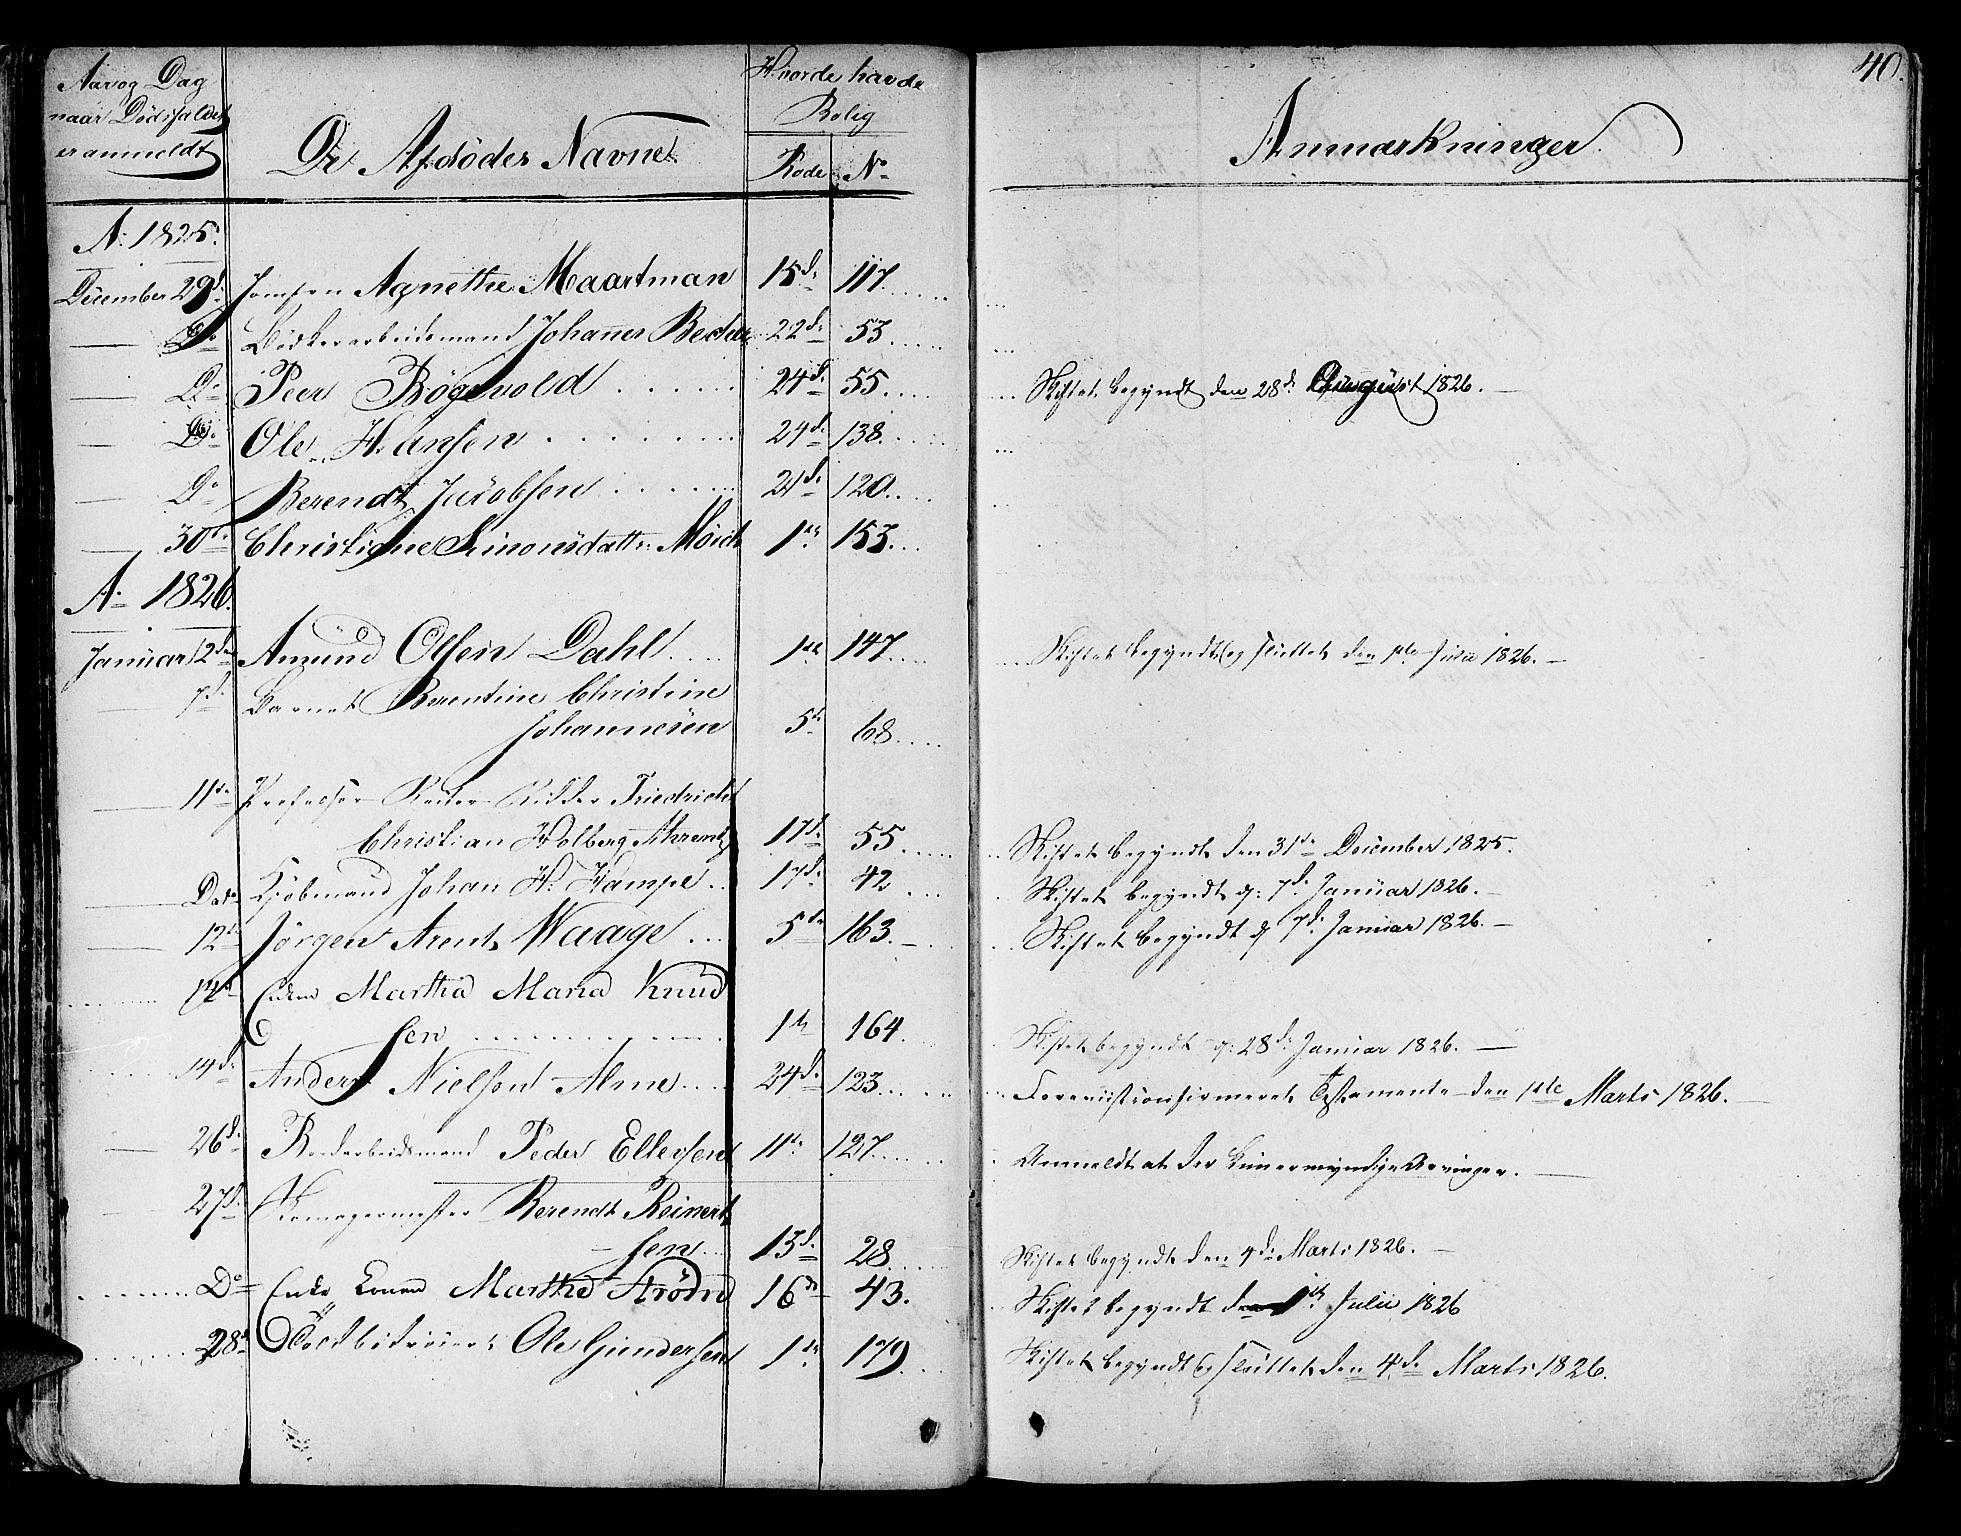 40.
Aar og Dag
naar Dödsfaldet
er anmeldt
De Afdödes Navne
Hvorde havde
Bolig
Rode No
Anmærkninger.
Ao 1825.
December 29de Jomfru Agnethe Maartman 15de 117.
Do Bödkerarbeidsmand Johannes Becker 22de 53
Do Peer Bögevold 24de 55. Skiftet begyndt den 28de August 1826.
Do Ole Hansen 24de 138.
Do Berendt Jacobsen 24de 120.
30te Christiane Simonsdattr 1te 153.
Ao 1826.
Januar 2den Amund Olsen Dahl 1te 147. Skiftet begyndt og sluttet den 1ste Julii 1826.
7de Barnet Berentine Christine
Johannesen 5te 68.
11te Professor Ridder Friedrich
Christian Holberg Ahrentz 17de 55. Skiftet begyndt den 31te December 1825.
Dato Kjöbmand Johan H. Kampe 17de 42 Skiftet begyndt d: 7de Januar 1826.
12te Jörgen Arent Waage 5te 163. Skiftet begyndt d 7de Januar 1826.
14de Enken Martha Maria Knud
sen 1te 164. Skiftet begyndt d: 28de Januar 1826.
14de Anders Nielsen Alme 24de 123. Forevist confirmeret Testamente den 1ste Marts 1826.
26de Bodarbeidsmand Peder Ellersen 11te 127. Anmeldt at der kun er myndige Arvinger.
27de Skomagermester Berendt Reinert
sen 13de 28. Skiftet begyndt den 4de Marts 1826.
Do Enke Konen Marthe Strödn 16de 43. Skiftet begyndt den 1te Julii 1826
28de Toldbetient Ole Gundersen 1te 179. Skiftet begyndt og sluttet den 4de Marts 1826.